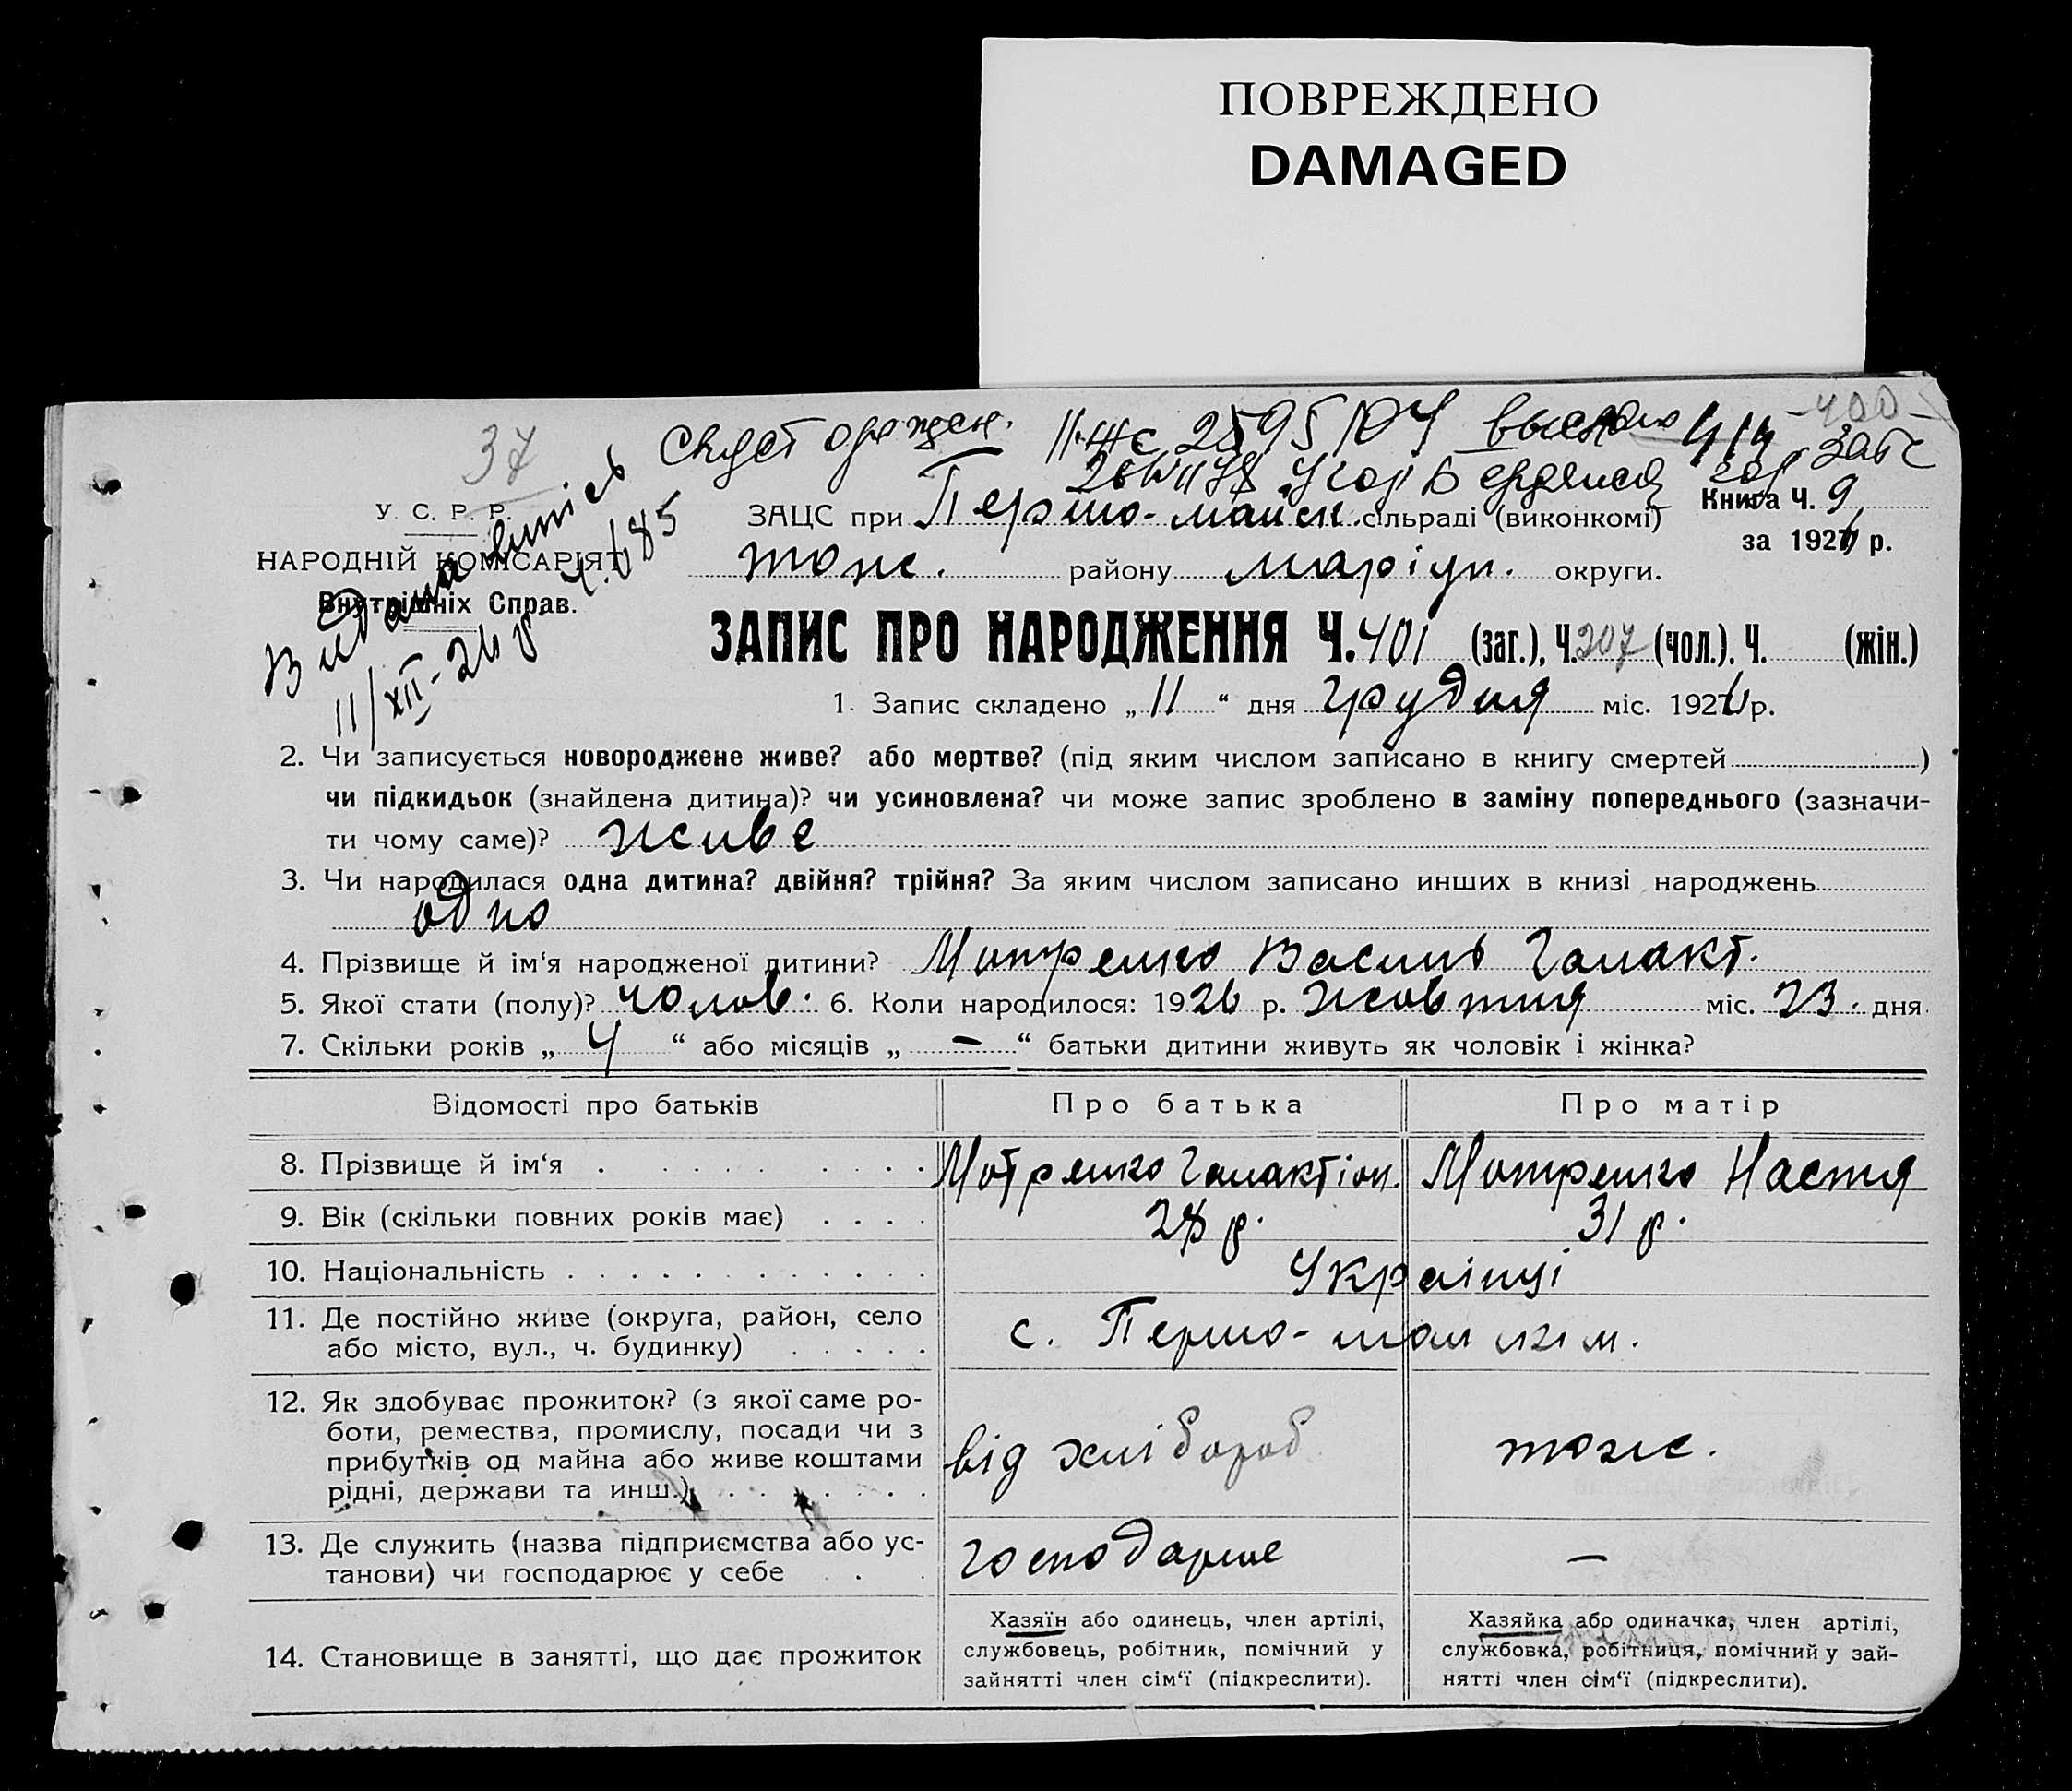 ПОВРЕЖДЕНО
DAMAGED
37
-400-
У. С. Р. Р.
НАРОДНІЙ КОМІСАРІЯТ
Внутрішніх Справ.
Видана випись ч. 685
11/XII-26 р.
ЗАЦС при Першо-майск. сільраді (виконкомі)
Книга Ч. 9
за 1926 р.
тож. району Маріуп. округи.
ЗАПИС ПРО НАРОДЖЕННЯ Ч. 401 (заг.), Ч. 207 (чол.). Ч. (жін.)
1. Запис складено „ 11 “ дня грудня міс. 1926 р.
2. Чи записується новороджене живе? або мертве? (під яким числом записано в книгу смертей )
чи підкидьок (знайдена дитина)? чи усиновлена? чи може запис зроблено в заміну попереднього (зазначи-
ти чому саме)? живе
3. Чи народилася одна дитина? двійня? трійня? За яким числом записано инших в книзі народжень
одно
4. Прізвище й ім‘я народженої дитини? Мотренко Василь Галакт.
5. Якої стати (полу)? чолов. 6. Коли народилося: 1926 р. жовтня міс. 23. дня
7. Скільки років „ 4 “ або місяців „ – “ батьки дитини живуть як чоловік і жінка?
Відомості про батьків Про батька Про матір
8. Прізвище й ім‘я Мотренко Галактіон. Мотренко Настя
9. Вік (скільки повних років має) 28 р. 31 р.
10. Національність Українці
11. Де постійно живе (округа, район, село
або місто, вул., ч. будинку)
с. Першо-майськ.
12. Як здобуває прожиток? (з якої саме ро-
боти, ремества, промислу, посади чи з
прибутків од майна або живе коштами
рідні, держави та инш.)
від хлібороб тож.
13. Де служить (назва підприємства або ус-
танови) чи господарює у себе
господарює –
14. Становище в занятті, що дає прожиток
Хазяїн або одинець, член артілі,
службовець, робітник, помічний у
зайнятті член сім‘ї (підкреслити).
Хазяйка або одиначка, член артілі,
службовка, робітниця, помічний у зай-
нятті член сім‘ї (підкреслити).